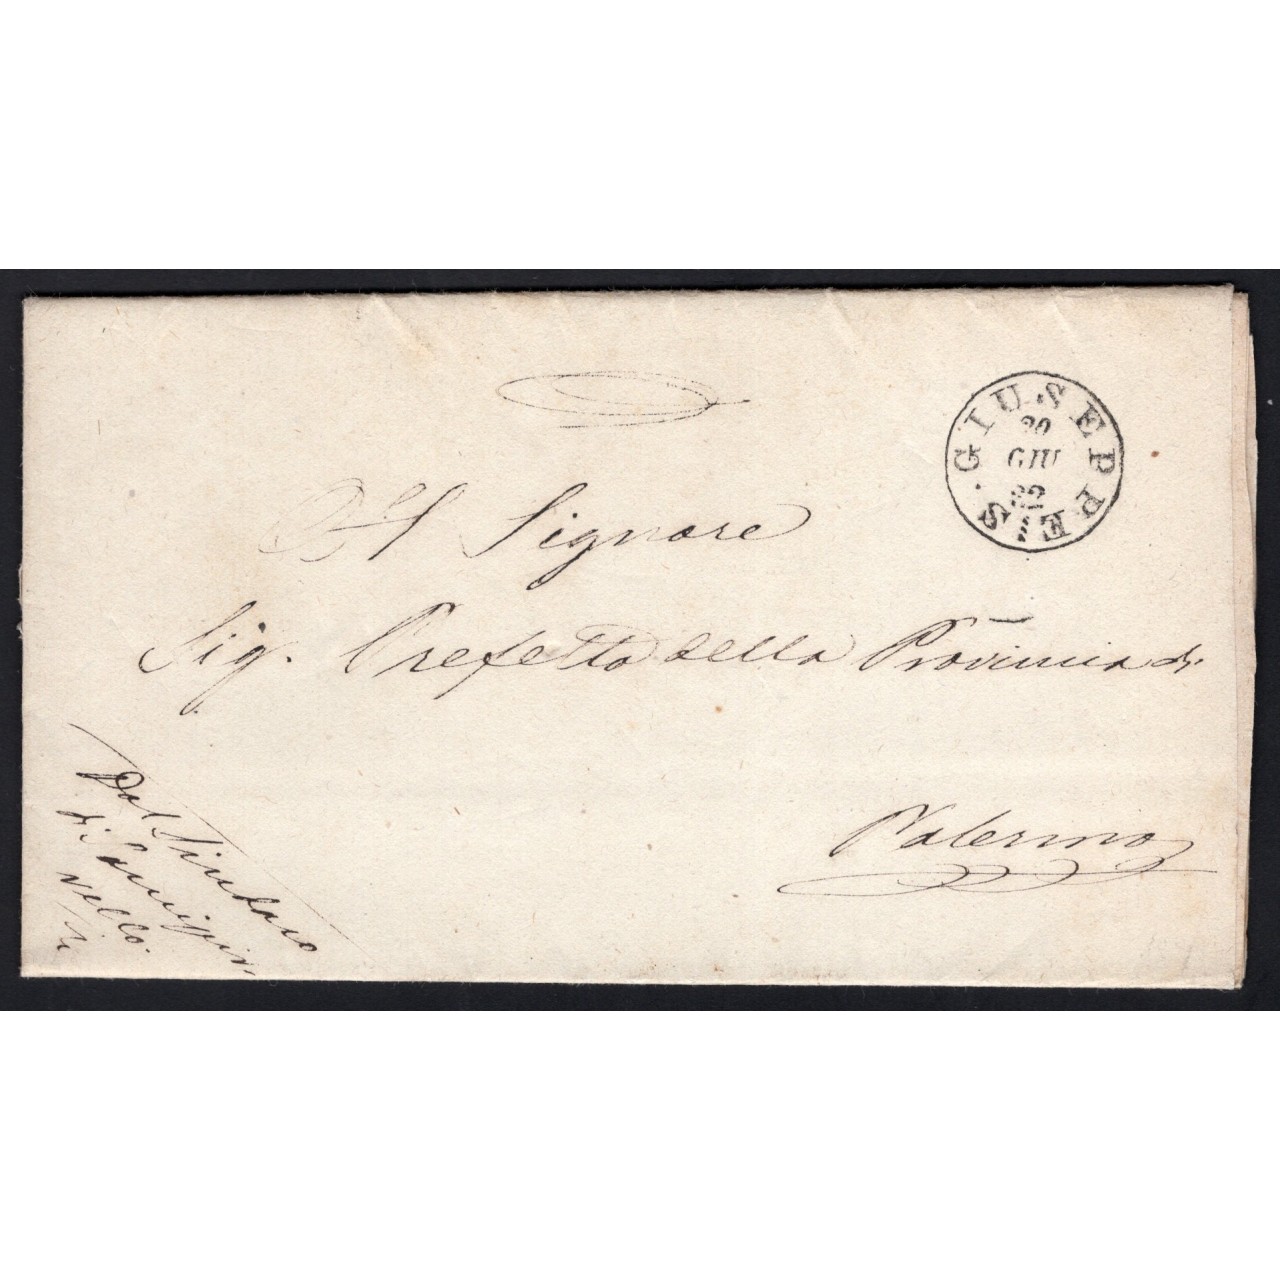 S. GIUSEPPE
20
GIU
82
Al Signore
Sig. Prefetto della Provincia di
Palermo
Dal Sindaco
di
vello